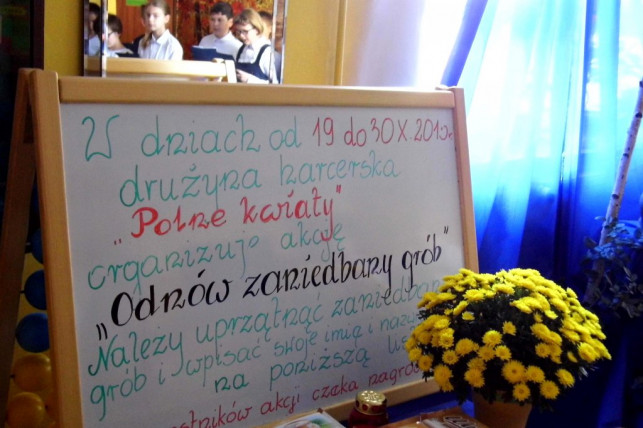 W dniach od 19 do 30 X. 2015r.
drużyna harcerska
„Polne kwiaty"
organizuje akcję
„Odnów zaniedbany grób"
Należy uprzątnąć
grób i wpisać swoje imię i
na poniższą
akcji czeka